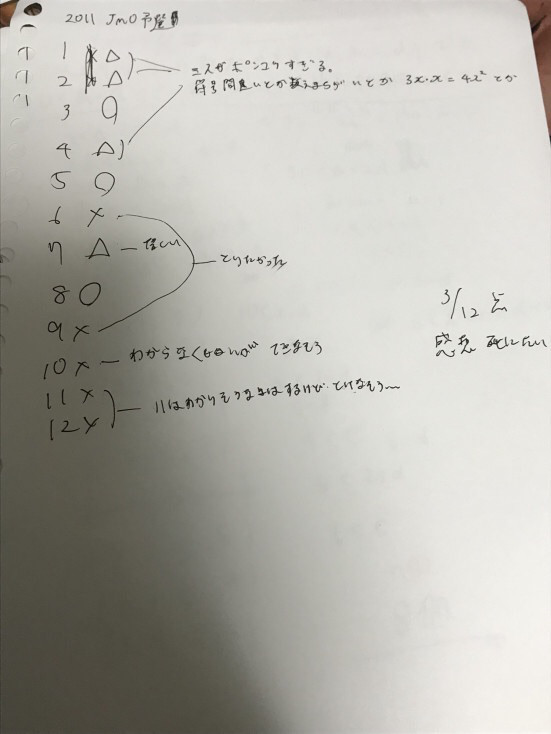 2011 JMO予選
1 × △
2 × △
ミスがポンコツすぎる。
符号間違いとか数えまちがいとか 3x·x=4x²とか
3 ○
4 △
5 ○
6 ×
7 △ — 惜しい
とりたかった
8 ○
9 ×
3/12 点
10 × — わからなくも できなそう
感想 死にたい
11 ×
12 ×
11はわかりそうな気はするけど とけなそう〜